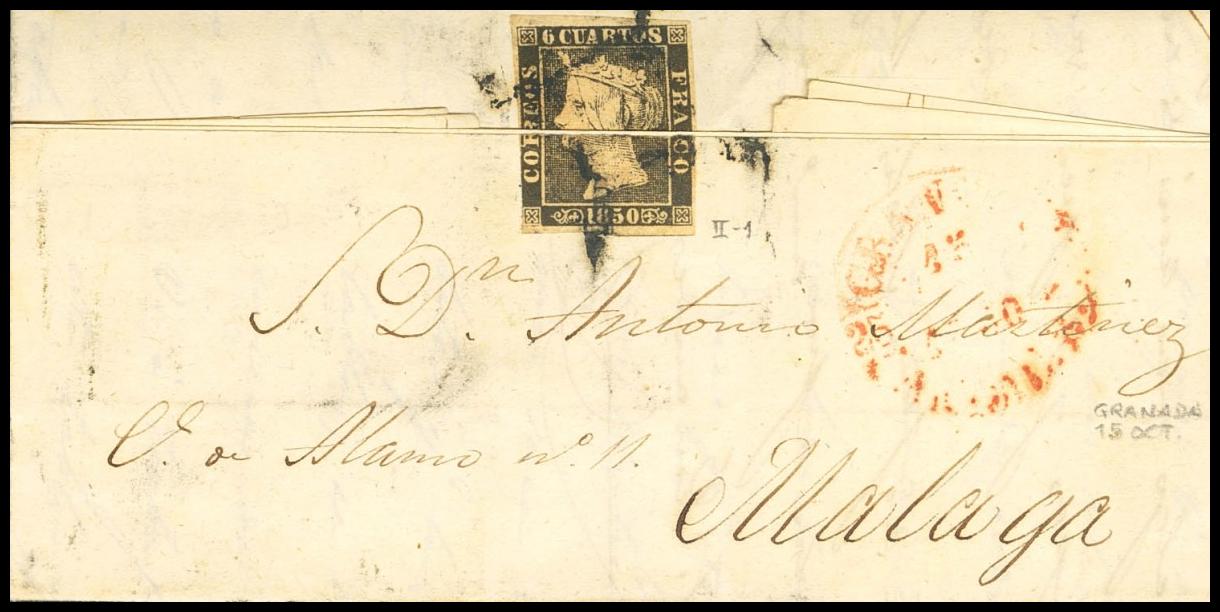 6 CUARTOS
CORREOS
FRANCO
1850
II-1
S. Dn. Antonio Martinez
C. de Alamo nº 11.
Malaga
GRANADA
15 OCT.